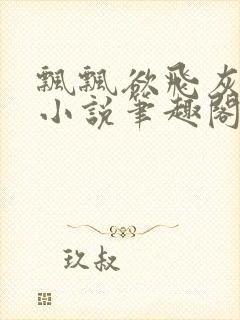 飘飘欲飛灰
小説筆趣閣
玖叔